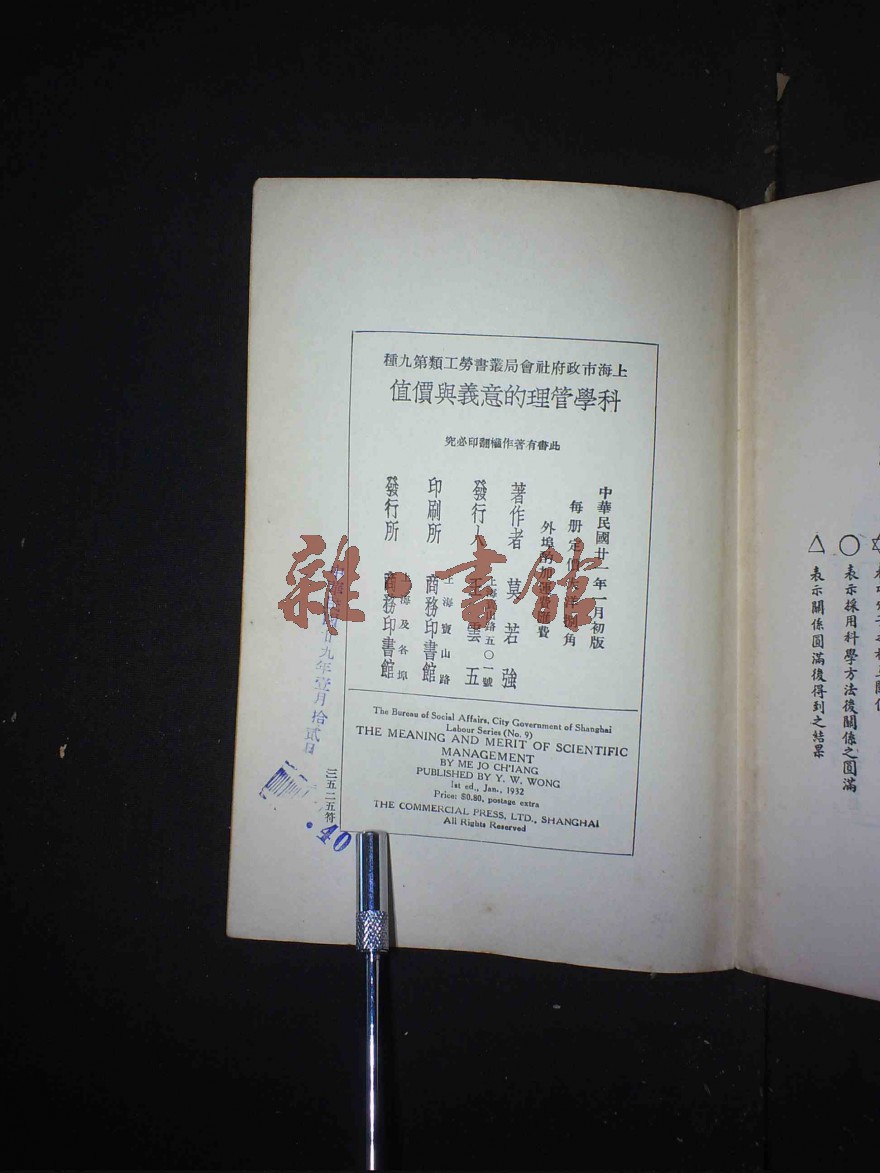 上海市政府社會局叢書勞工類第九種
科學管理的意義與價值
此書有著作權翻印必究
中華民國廿一年一月初版
每册定價大洋捌角
外埠酌加運費匯費
著作者 莫若強
發行人 王雲五
上海寶山路五〇一號
印刷所 商務印書館
上海寶山路
發行所 商務印書館
上海及各埠
The Bureau of Social Affairs, City Government of Shanghai
Labour Series (No. 9)
THE MEANING AND MERIT OF SCIENTIFIC
MANAGEMENT
BY ME JO CH'IANG
PUBLISHED BY Y. W. WONG
1st ed., Jan., 1932
Price: $0.80, postage extra
THE COMMERCIAL PRESS, LTD., SHANGHAI
All Rights Reserved
三五二五符
廿九年壹月拾貳日
.40
雜·書館
○表示採用科學方法後關係之圓滿
△表示關係圓滿後得到之結果